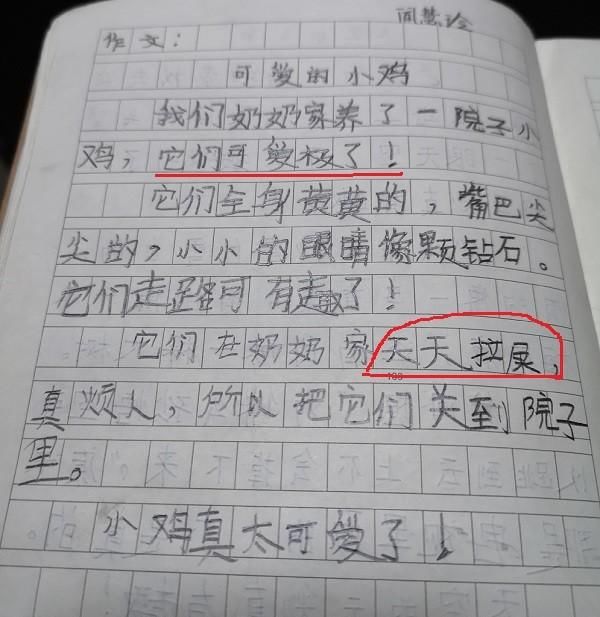 闻慧玲
作文：
可爱的小鸡
我们奶奶家养了一院子小
鸡，它们可爱极了！
它们全身黄黄的，嘴巴尖
尖的，小小的眼睛像颗钻石。
它们走路可有趣了！
它们在奶奶家天天拉屎，
真烦人，所以把它们关到院子
里。
小鸡真太可爱了！